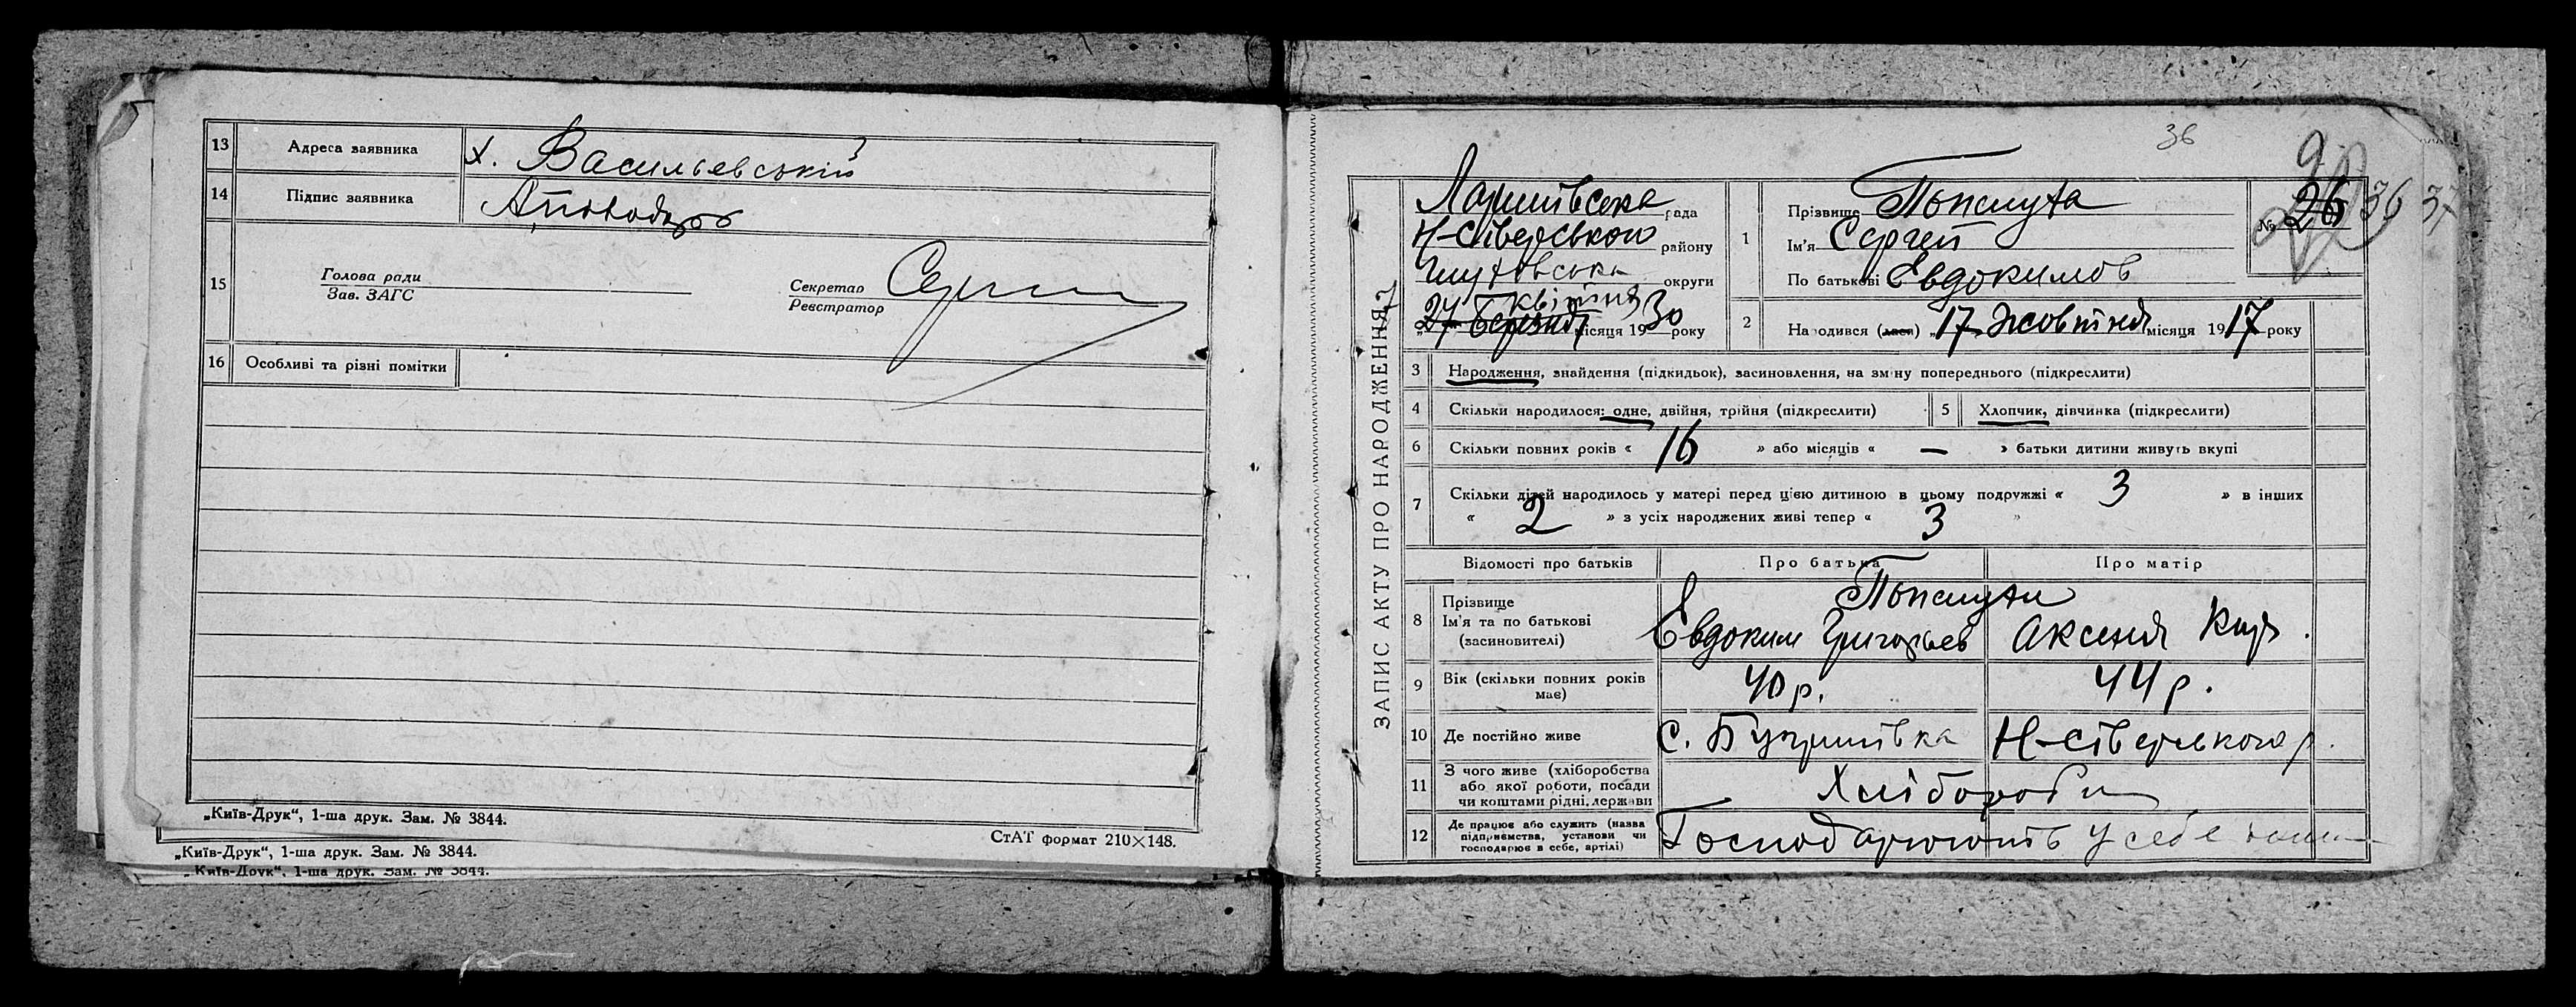 13 Адреса заявника х. Васильевський
14 Підпис заявника
15 Голова ради
Зав. ЗАГС
Секретар
Реєстратор
16 Особливі та різні помітки
„Київ-Друк“, 1-ша друк. Зам. № 3844.
СтАТ формат 210×148.
„Київ-Друк“, 1-ша друк. Зам. № 3844.
„Київ-Друк“, 1-ша друк. Зам. № 3844.
36
ЗАПИС АКТУ ПРО НАРОДЖЕННЯ
рада
Н-Сіверського району
Глухівська округи
7 квітня
27 Березня місяця 1930 року
1 Прізвище
Ім'я Сергей
По батькові Евдокимов
№ 26 36 37
2 Народився (лася) „17„ Жовтня місяця 1917 року
3 Народження, знайдення (підкидьок), засиновлення, на зміну попереднього (підкреслити)
4 Скільки народилося: одне, двійня, трійня (підкреслити)
5 Хлопчик, дівчинка (підкреслити)
6 Скільки повних років « 16 » або місяців « — » батьки дитини живуть вкупі
7 Скільки дітей народилось у матері перед цією дитиною в цьому подружжі « 3 » в інших
« 2 » з усіх народжених живі тепер « 3 »
Відомості про батьків Про батька Про матір
8 Прізвище
Ім'я та по батькові
(засиновителі)
Евдоким Григорьев Аксения
9 Вік (скільки повних років має) 40 р. 44 р.
10 Де постійно живе с. Н-Сіверського р.
11 З чого живе (хліборобства
або якої роботи, посади
чи коштами рідні, держави
Хлібороби
12 Де працює або служить (назва
підприємства, установи чи
господарює в себе, артілі)
Господарюють у себе